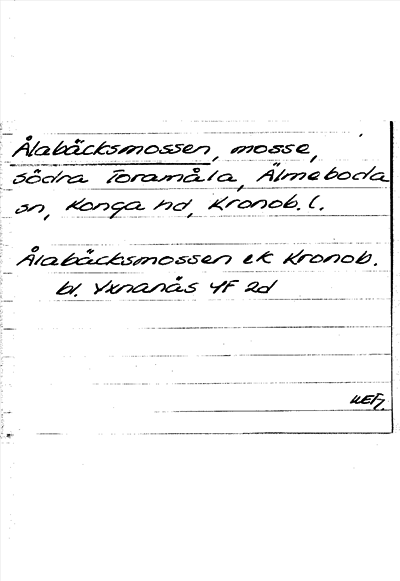 Ålabäcksmossen, mosse,
södra Toramåla, Älmeboda
sn, Konga hd, Kronob. l.
Ålabäcksmossen ek Kronob.
bl. Yxnanås 4F 2d